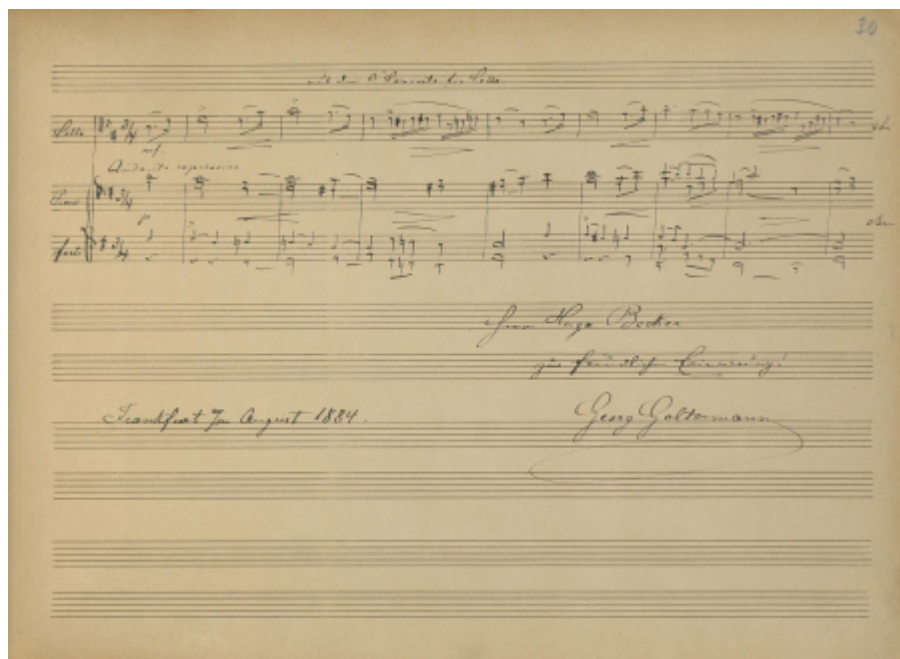 30
aus dem Concerte für Cello
Cello
mf.
Andante espressivo
Piano
p
forte
Herrn Hugo Becker
zur freundlichen Erinnerung!
Frankfurt Im August 1884.
Georg Goltermann